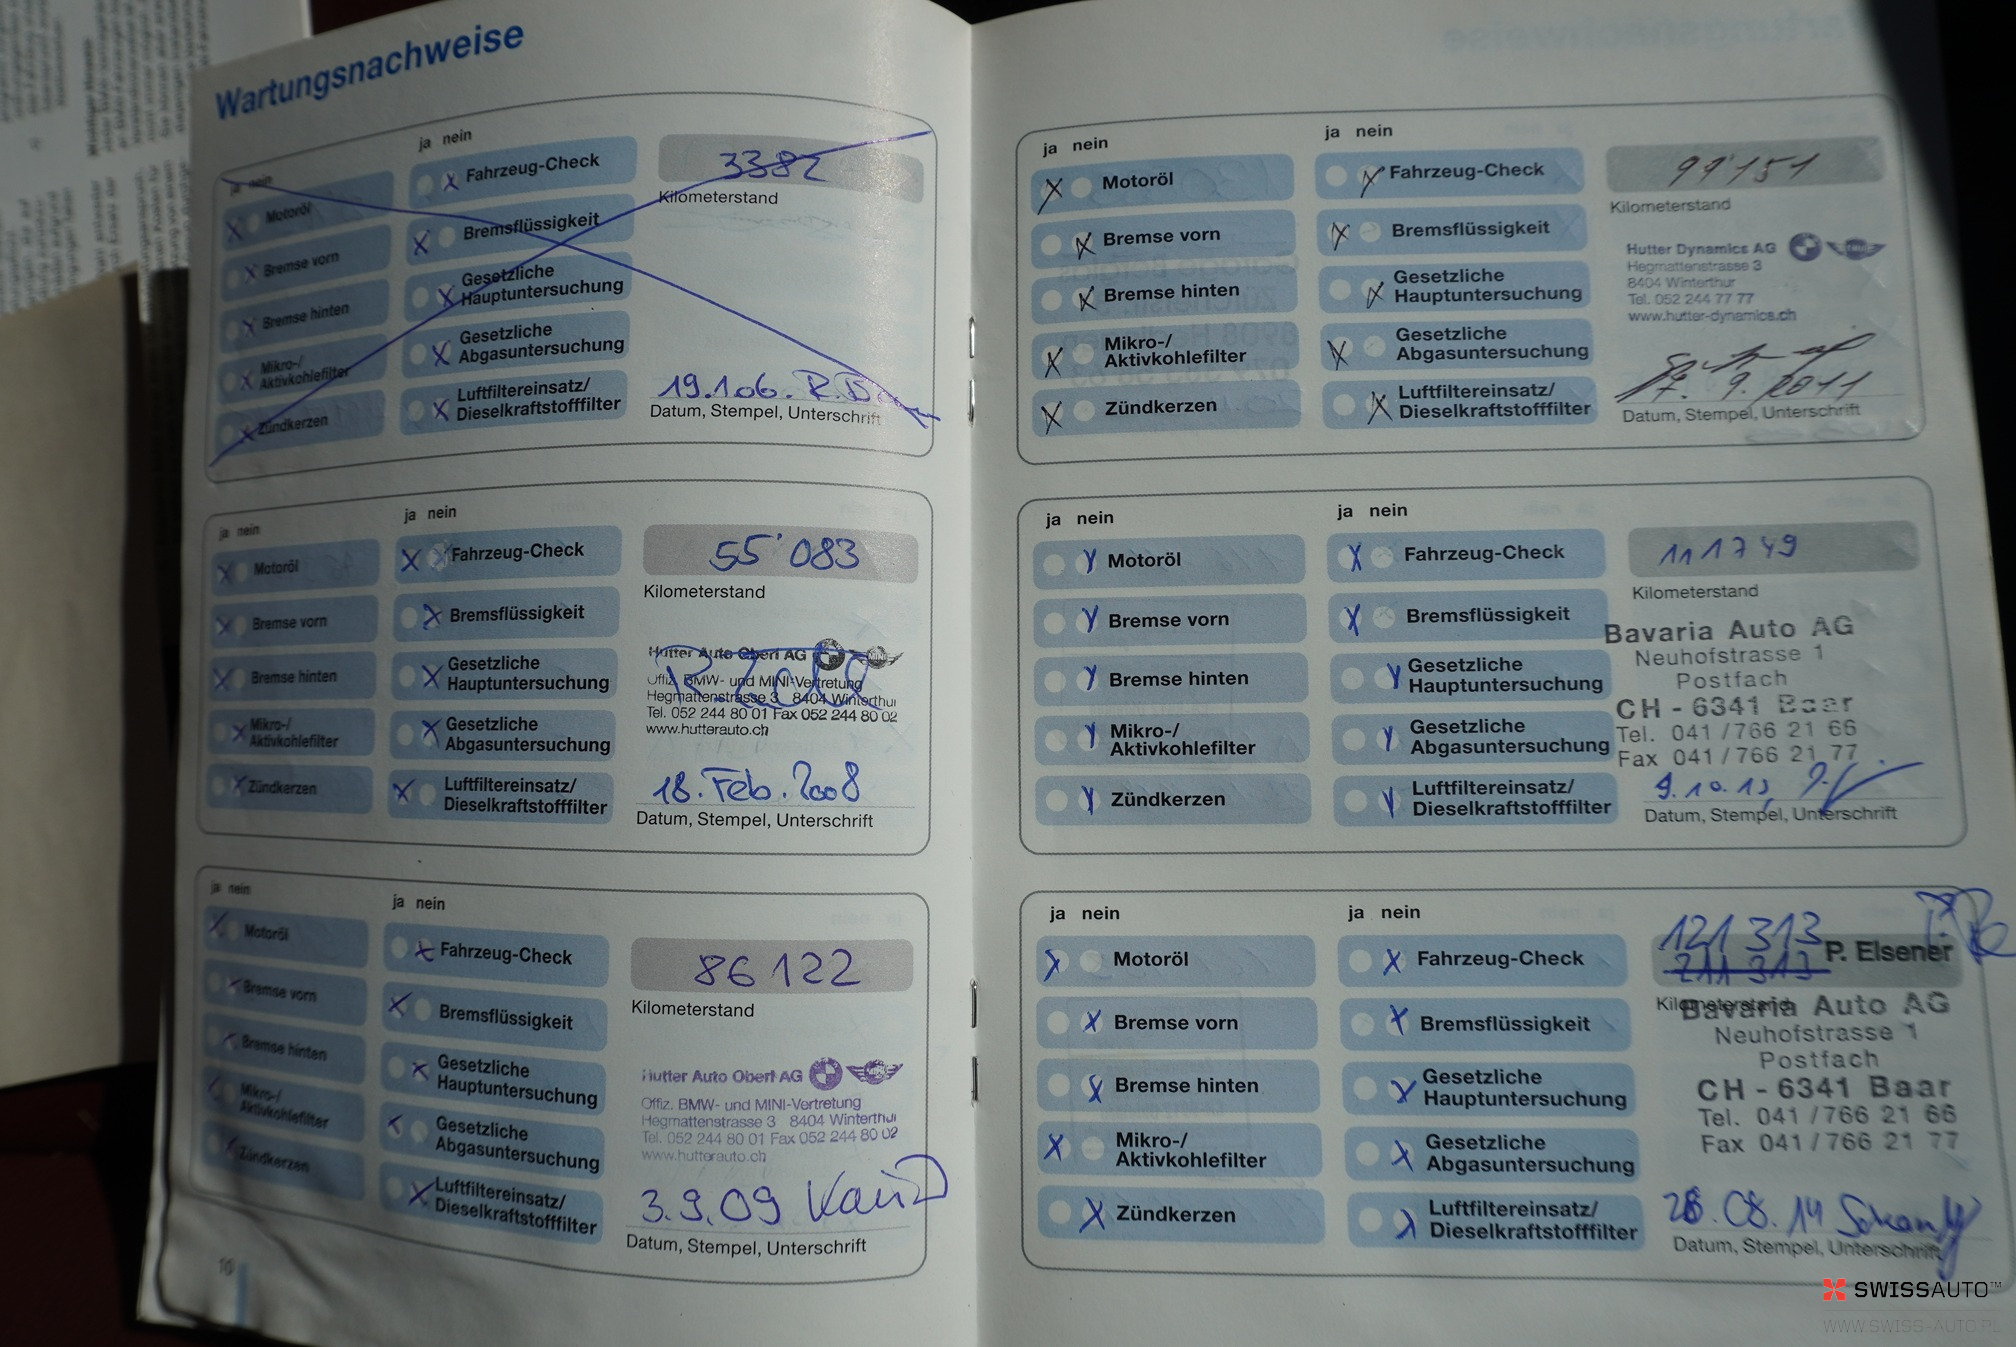 Wartungsnachweise
ja nein
Motoröl
Bremse vorn
Bremse hinten
Mikro-/
Aktivkohlefilter
Zündkerzen
ja nein
Fahrzeug-Check
Bremsflüssigkeit
Gesetzliche
Hauptuntersuchung
Gesetzliche
Abgasuntersuchung
Luftfiltereinsatz/
Dieselkraftstofffilter
3382
Kilometerstand
19.1.06. R.
Datum, Stempel, Unterschrift
ja nein
Motoröl
Bremse vorn
Bremse hinten
Mikro-/
Aktivkohlefilter
Zündkerzen
ja nein
Fahrzeug-Check
Bremsflüssigkeit
Gesetzliche
Hauptuntersuchung
Gesetzliche
Abgasuntersuchung
Luftfiltereinsatz/
Dieselkraftstofffilter
55'083
Kilometerstand
Hutter Auto Oberl AG
Offiz. BMW- und MINI-Vertretung
Hegmattenstrasse 3 8404 Winterthur
Tel. 052 244 80 01 Fax 052 244 80 02
www.hutterauto.ch
18. Feb. 2008
Datum, Stempel, Unterschrift
ja nein
Motoröl
Bremse vorn
Bremse hinten
Mikro-/
Aktivkohlefilter
Zündkerzen
ja nein
Fahrzeug-Check
Bremsflüssigkeit
Gesetzliche
Hauptuntersuchung
Gesetzliche
Abgasuntersuchung
Luftfiltereinsatz/
Dieselkraftstofffilter
86122
Kilometerstand
Hutter Auto Oberl AG
Offiz. BMW- und MINI-Vertretung
Hegmattenstrasse 3 8404 Winterthur
Tel. 052 244 80 01 Fax 052 244 80 02
www.hutterauto.ch
3.9.09
Datum, Stempel, Unterschrift
10
ja nein
Motoröl
Bremse vorn
Bremse hinten
Mikro-/
Aktivkohlefilter
Zündkerzen
ja nein
Fahrzeug-Check
Bremsflüssigkeit
Gesetzliche
Hauptuntersuchung
Gesetzliche
Abgasuntersuchung
Luftfiltereinsatz/
Dieselkraftstofffilter
99'151
Kilometerstand
Hutter Dynamics AG
Hegmattenstrasse 3
8404 Winterthur
Tel. 052 244 77 77
www.hutter-dynamics.ch
9. 2011
Datum, Stempel, Unterschrift
ja nein
Motoröl
Bremse vorn
Bremse hinten
Mikro-/
Aktivkohlefilter
Zündkerzen
ja nein
Fahrzeug-Check
Bremsflüssigkeit
Gesetzliche
Hauptuntersuchung
Gesetzliche
Abgasuntersuchung
Luftfiltereinsatz/
Dieselkraftstofffilter
111749
Kilometerstand
Bavaria Auto AG
Neuhofstrasse 1
Postfach
CH - 6341 Baar
Tel. 041/766 21 66
Fax 041/766 21 77
9.10.13
Datum, Stempel, Unterschrift
ja nein
Motoröl
Bremse vorn
Bremse hinten
Mikro-/
Aktivkohlefilter
Zündkerzen
ja nein
Fahrzeug-Check
Bremsflüssigkeit
Gesetzliche
Hauptuntersuchung
Gesetzliche
Abgasuntersuchung
Luftfiltereinsatz/
Dieselkraftstofffilter
121 313
211 313 P. Elsener
Kilometerstand
Bavaria Auto AG
Neuhofstrasse 1
Postfach
CH - 6341 Baar
Tel. 041/766 21 66
Fax 041/766 21 77
28.08.14
Datum, Stempel, Unterschrift
SWISSAUTO™
WWW.SWISS-AUTO.PL